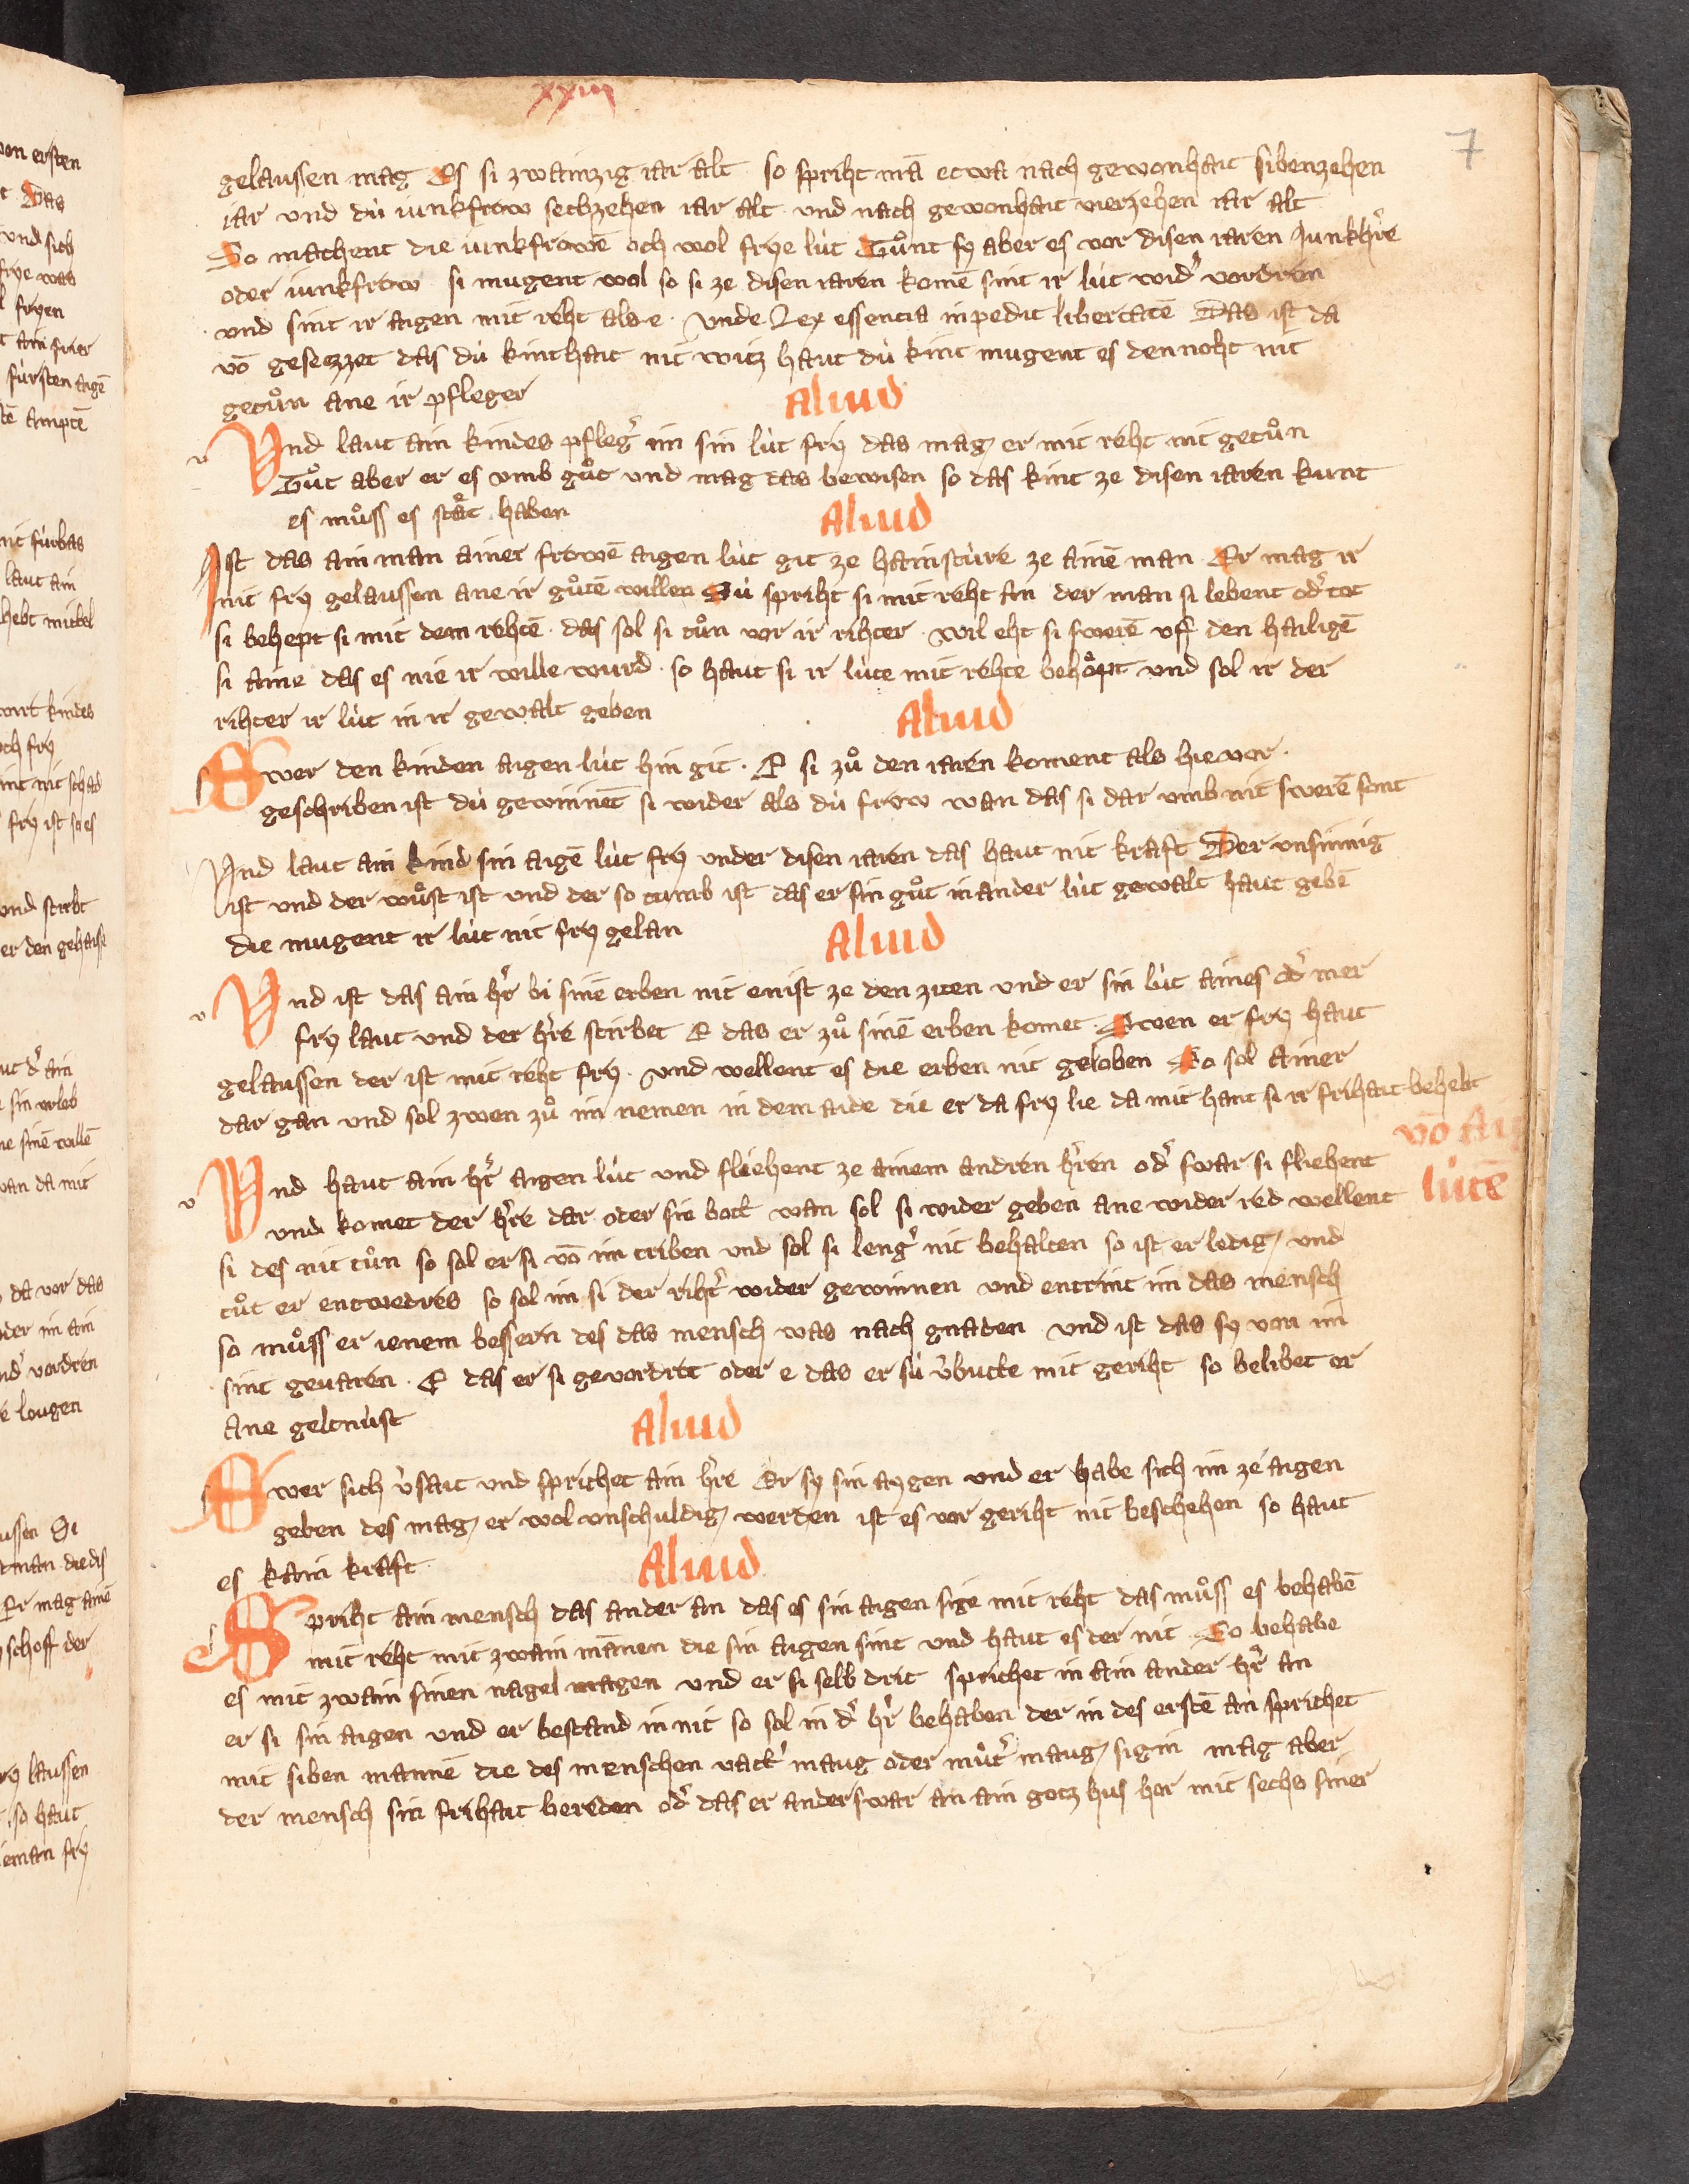 xxiij
7
gelaussen mag Es si zwainzig iar alt so spriht mā etwa nach gewonhait sibenzehen
iar vnd dù iunkfrow sechzehen iar alt vnd nach gewonhait vierzehen iar alt
So machent die iunkfrowē och wol frye lùt Tůnt sy aber es vor disen iaren Junkh̓re
oder iunkfrow si mugent wol so si ze disen iaren komē sint ir lùt wid̓ vordren
vnd sint ir aigen mit reht als e vnde Lex essencia inpedit libertatē Das ist da
vō gesetzzet das dù kinthait nit witz haut dù kint mugent es dennoht nit
getůn ane ir pfleger
Aliud
Vnd laut ain kindes pfleg̓ im sin lùt fry das mag er mit reht nit getůn
Tůt aber er es vmb gůt vnd mag das bewisen so das kint ze disen iaren kunt
es můss es stät haben
Aliud
Ist das ain man ainer frowē aigen lùt git ze hainstùre ze ainē man Er mag ir
nit fry gelaussen ane ir gůtē willen Dù spriht si mit reht an der man si lebent od̓ tot
si behept si mit dem rehtē das sol si tůn vor ir rihter wil eht si swerē vff den hailigē
si aine das es nie ir wille wurd so haut si ir lùte mit rehte behöpt vnd sol ir der
rihter ir lùt in ir gewalt geben
Aliud
Swer den kinden aigen lùt hin git E si zů den iaren koment als hie vor
geschriben ist dù gewinnet si wider als dù frow wan das si dar vmb nit swerē sont
Vnd laut ain kind sin aigē lùt fry vnder disen iaren das haut nit kraft Der vnsinnig
ist vnd der wůst ist vnd der so tumb ist das er sin gůt in ander lùt gewalt haut gebē
die mugent ir lùt nit fry gelan
Aliud
Vnd ist das ain h̓r bi sinē erben nit enist ze den ziten vnd er sin lùt aines od̓ mer
fry laut vnd der h̓re stirbet E das er zů sinē erben komet Swen er fry haut
gelaussen der ist mit reht fry vnd wellent es die erben nit geloben So sol ainer
dar gan vnd sol zwen zů im nemen in dem aide die er da fry lie da mit hant si ir frihait behebt
vō aig
lùtē
Vnd haut ain h̓r aigen lùt vnd fliehent ze ainem andren h̓ren od̓ swar si fliehent
vnd komet der h̓re dar oder sin bott man sol si wider geben ane wider red wellent
si des nit tůn so sol er si vō im triben vnd sol si leng̓ nit behalten so ist er ledig vnd
tůt er entwedres so sol im si der riht̓ wider gewinnen vnd entrint im das mensch
so můss er ienem bessern des das mensch was nach gnaden vnd ist das sy von im
sint geuaren E das er si geuordret oder e das er sù v̓butte mit geriht so belibet er
ane geltnùst
Aliud
Swer sich v̓sait vnd sprichet ain h̓re Er sy sin aygen vnd er habe sich im ze aigen
geben des mag er wol vnschuldig werden ist es vor geriht nit beschehen so haut
es kain kraft
Aliud
Spriht ain mensch das ander an das es sin aigen sige mit reht das můss es behabē
mit reht mit zwain mānen die sin aigen sint vnd haut es der nit So behabe
es mit zwain sinen nagel magen vnd er si selb drit sprichet in ain ander h̓r an
er si sin aigen vnd er bestand in nit so sol in d̓ h̓r behaben der in des erstē an sprichet
mit siben mannē die des menschen vatt̓ maug oder můt̓ maug sigin mag aber
der mensch sin frihait bereden od̓ das er anderswar an ain gotzhus hör mit sechs siner